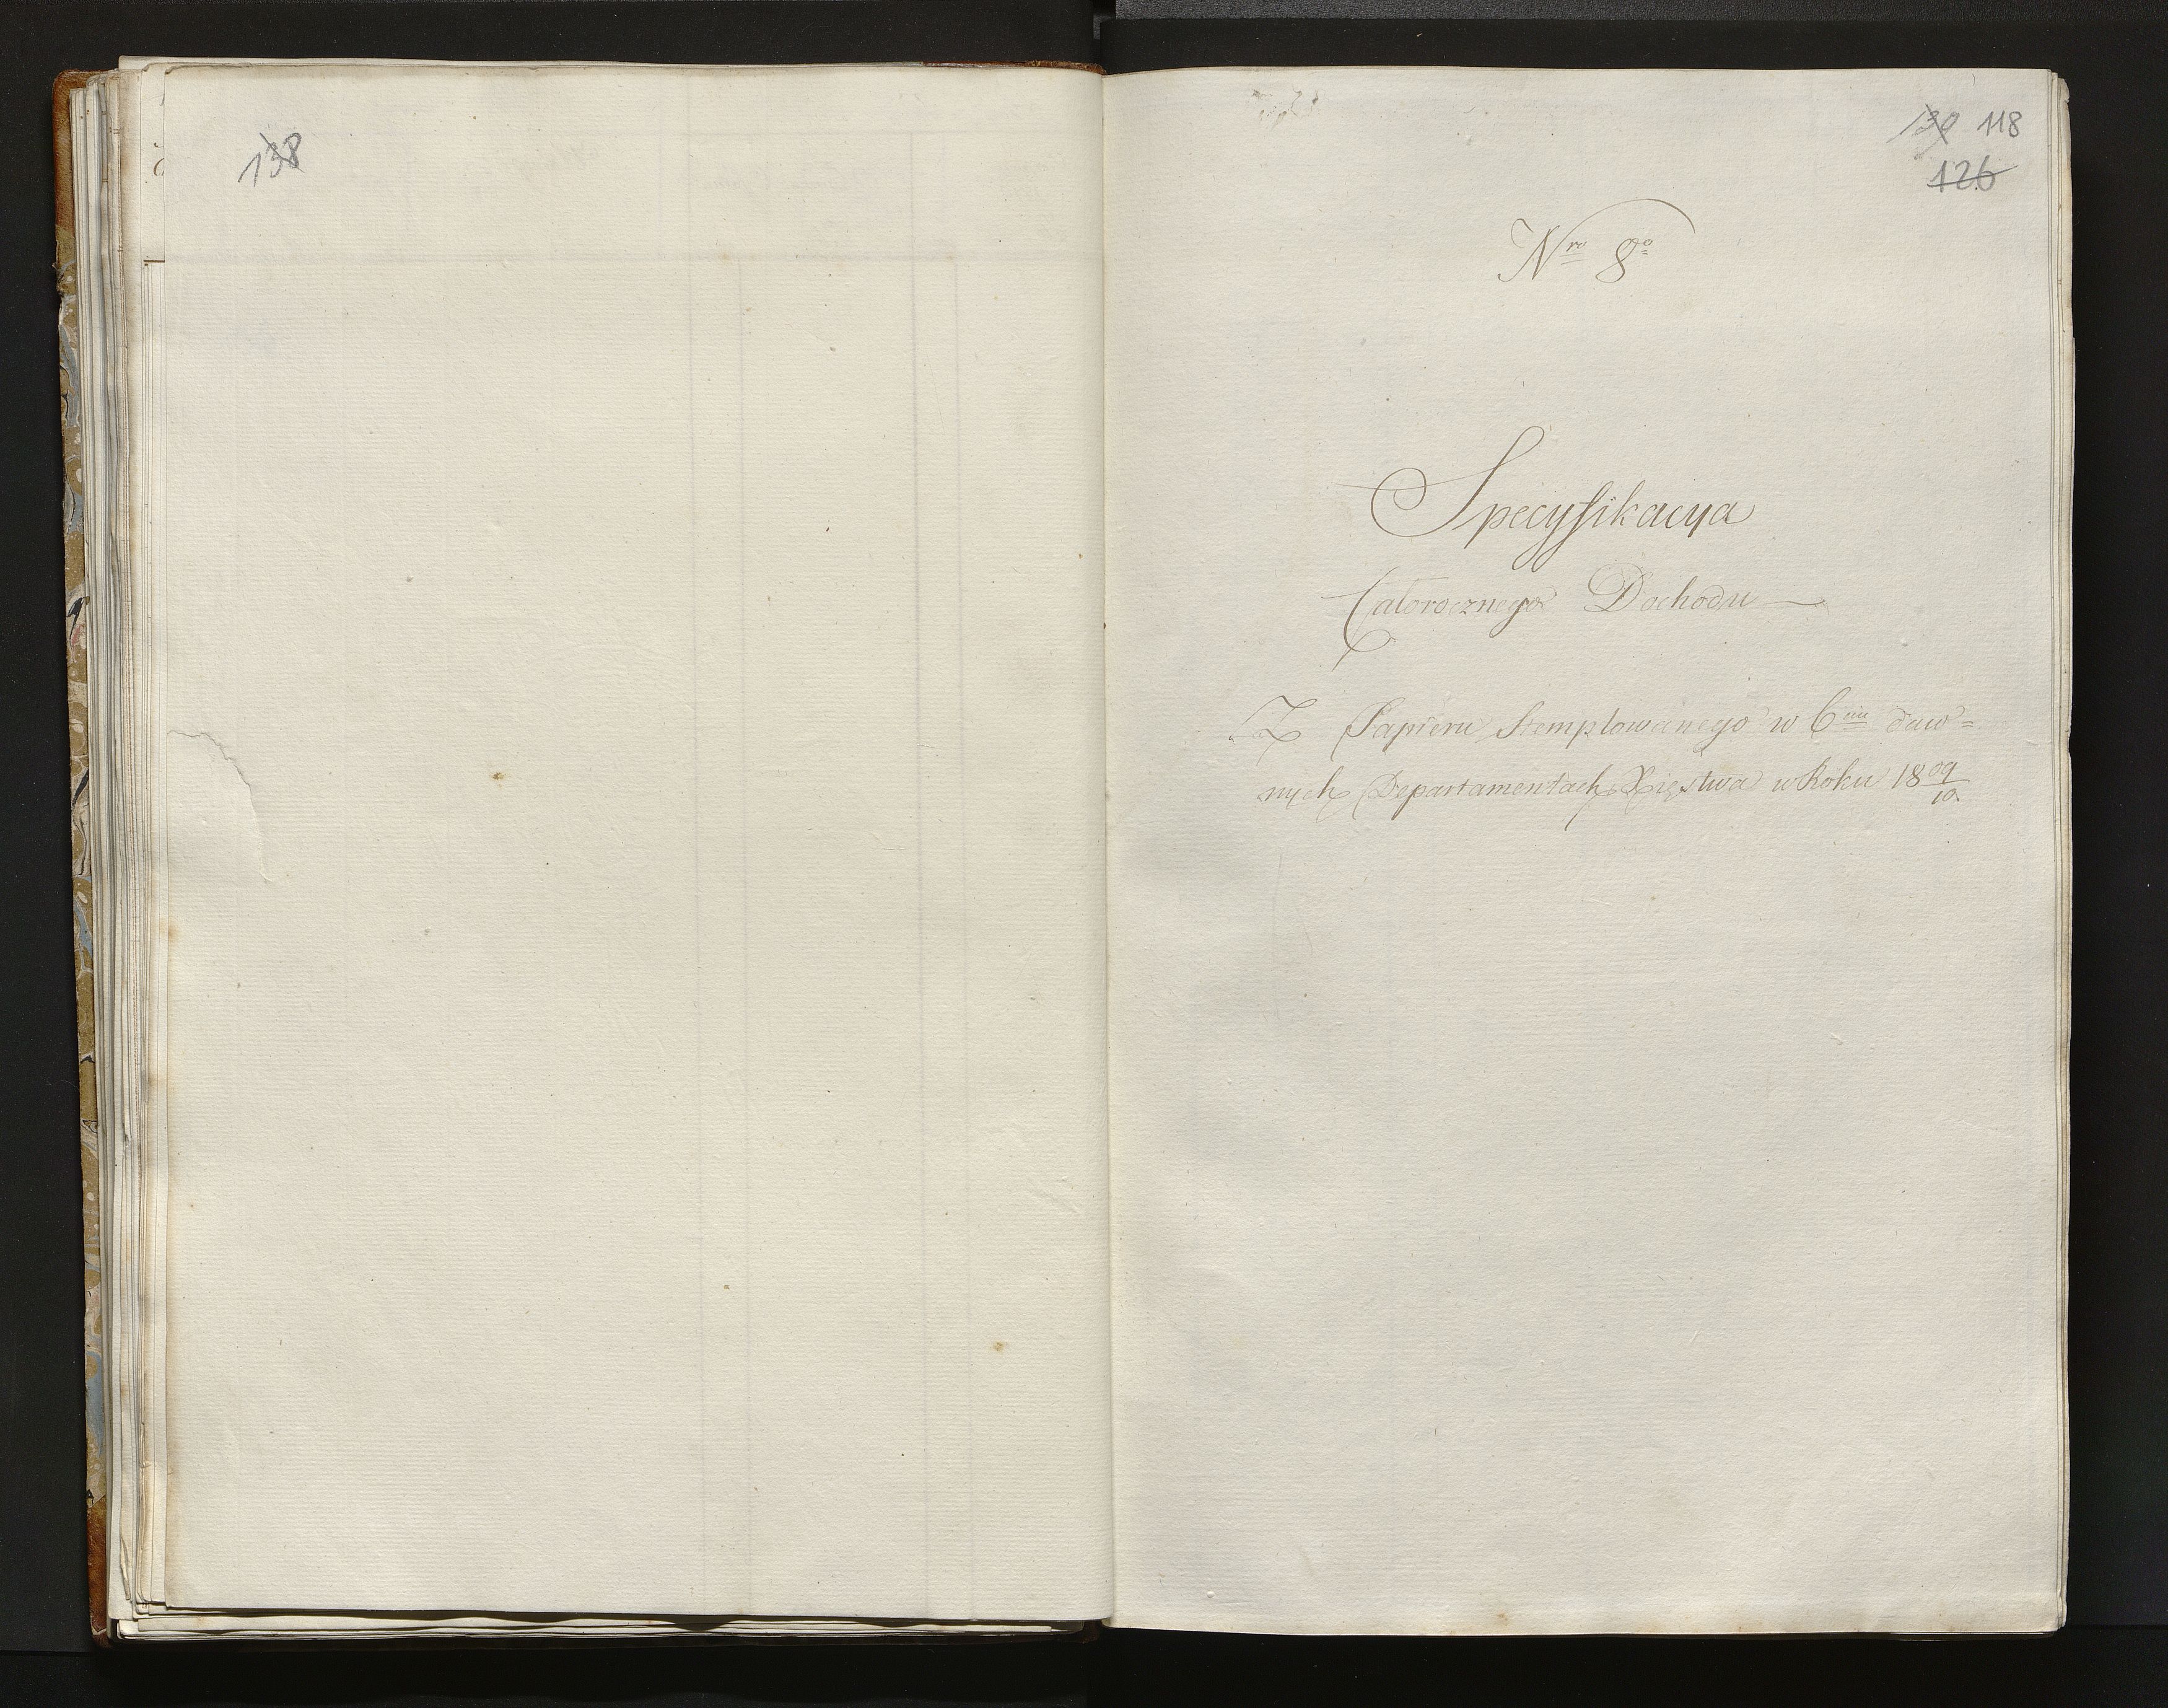 138
139 118
126
Nro 8o
Specyfikacya
Całorocznego Dochodu —
Z Papieru Stemplowanego w 6ciu daw=
nych Departamentach Xięstwa w Roku 18 09/10.